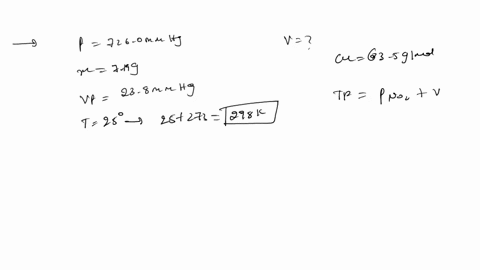 → P = 726.0 mm Hg
V = ?
Cu = 63.5 g/mol
VP = 23.8 mm Hg
TP = PNO2 + V
T = 25° → 25 + 273 = 298 K